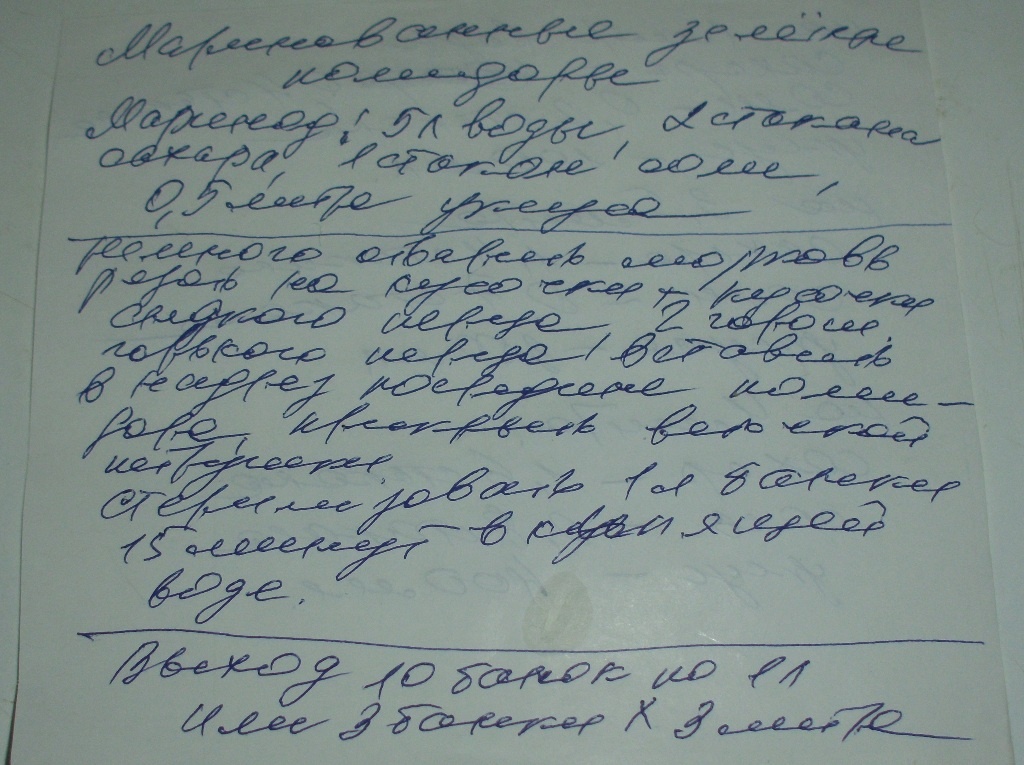 Маринованные зелёные
помидоры
Маринад: 5л воды, 2 стакана
сахара, 1 стакан соли,
0,5 литра уксуса
Немного отварить морковь
резать на кусочки + кусочки
сладкого перца, 2 горош.
горького перца! Вставить
в надрез посредине поми-
дора, прикрыть веточкой
петрушки
Стерилизовать 1л банки
15 минут в кипящей
воде.
Выход 10 банок по 1л
или 3 банки х 3 литра